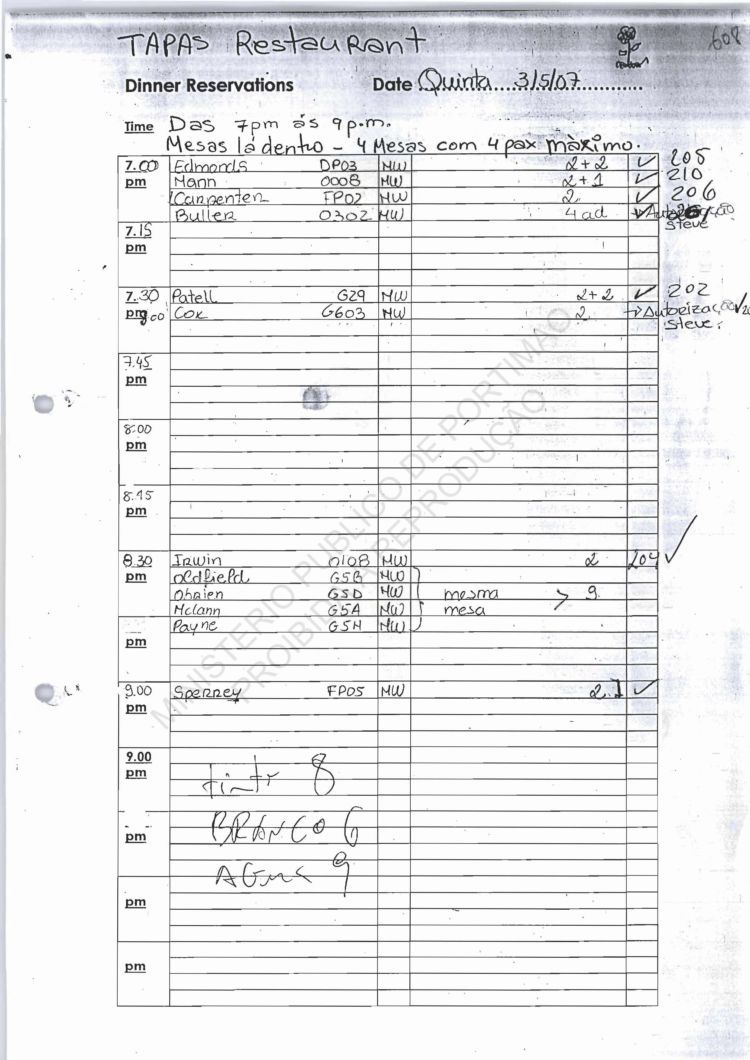 608
TAPAS Restaurant
Dinner Reservations Date Quinta...3/5/07............
Time Das 7pm ás 9p.m.
Mesas lá dentro - 4 Mesas com 4 pax màximo.
7.00 Edmonds DP03 MW 2+2 ✓ 208
pm Mann 0008 MW 2+1 ✓ 210
Carpenter FP02 MW 2 ✓ 206
Buller 0302 MW 4 ad Autorização
7.15 Steve
pm
7.30 Patell G29 MW 2+2 ✓ 202
pm Cox G603 MW 2 → Autorização
Steve.
7.45
pm
8:00
pm
8.15
pm
8.30 Irwin 0108 MW 2 204 ✓
pm Oldfield G5B MW
Obrien G5D MW mesma > 9
McCann G5A MW mesa
Payne G5H MW
pm
9.00 Sperrey FP05 MW 2 ✓
pm
9.00
pm
tinto 8
BRANCO 6
pm
AGUA 9
pm
pm
MINISTÉRIO PÚBLICO DE PORTIMÃO
PROIBIDA A REPRODUÇÃO